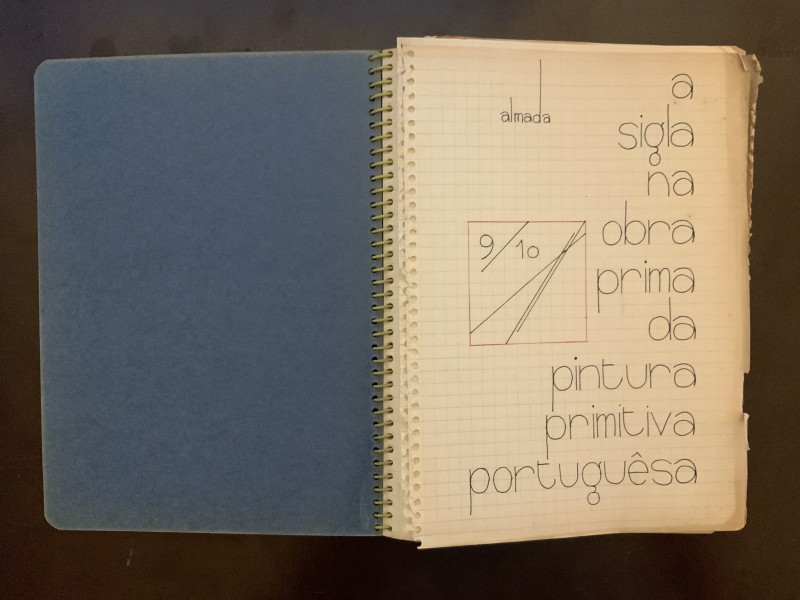 almada
a
sigla
na
obra
prima
da
pintura
primitiva
portuguêsa
9/10